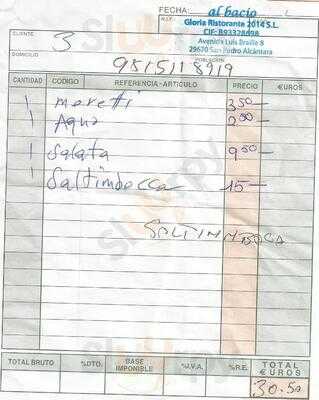 FECHA al bacio
N.I.F. Gloria Ristorante 2014 S.L.
CIF: B93328498
Avenida Luis Braille 8
29670 San Pedro Alcántara
CLIENTE 3
DOMICILIO POBLACIÓN
CANTIDAD CODIGO REFERENCIA - ARTÍCULO PRECIO €UROS
1 moretti 3,50
1 Aqua 2,50
1 Salata 9,50
1 Saltimbocca 15
SALTIMNBOCA
TOTAL BRUTO %DTO. BASE IMPONIBLE %I.V.A. %R.E. TOTAL €UROS
30.50